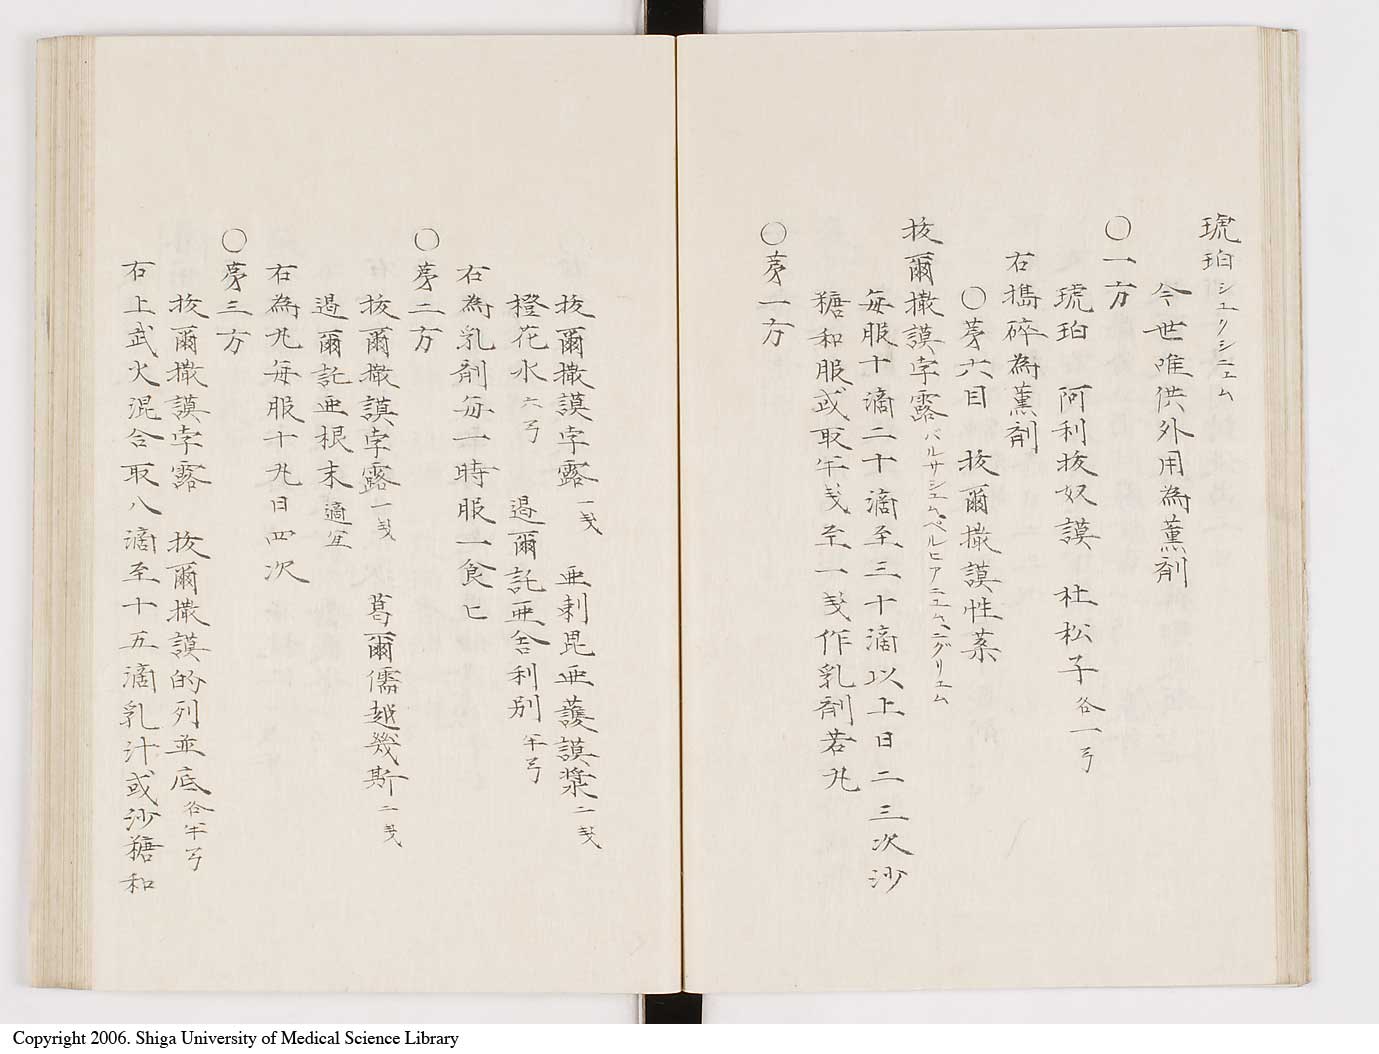 琥珀シュクシニュム
今世唯供外用為薫剤
〇一方
琥珀 阿利抜奴謨 杜松子各一弓
右搗碎為薫剤
〇苐六目 抜爾撒謨性薬
抜爾撒謨孛露バルサシェム、ペルヒアニュム、ニグリュム
毎服十滴二十滴至三十滴以上日二三次沙
糖和服或取半戔至一戔作乳剤若丸
〇苐一方
抜爾撒謨孛露一戔 亜剌毘亜護謨漿二戔
橙花水六弓 過爾託亜舎利別半弓
右為乳剤毎一時服一食匕
〇苐二方
抜爾撒謨孛露一戔 葛爾儒越幾斯二戔
過爾託亜根末適宜
右為丸毎服十丸日四次
〇苐三方
抜爾撒謨孛露 抜爾撒謨的列並底各半弓
右上武火混合取八滴至十五滴乳汁或沙糖和
Copyright 2006. Shiga University of Medical Science Library